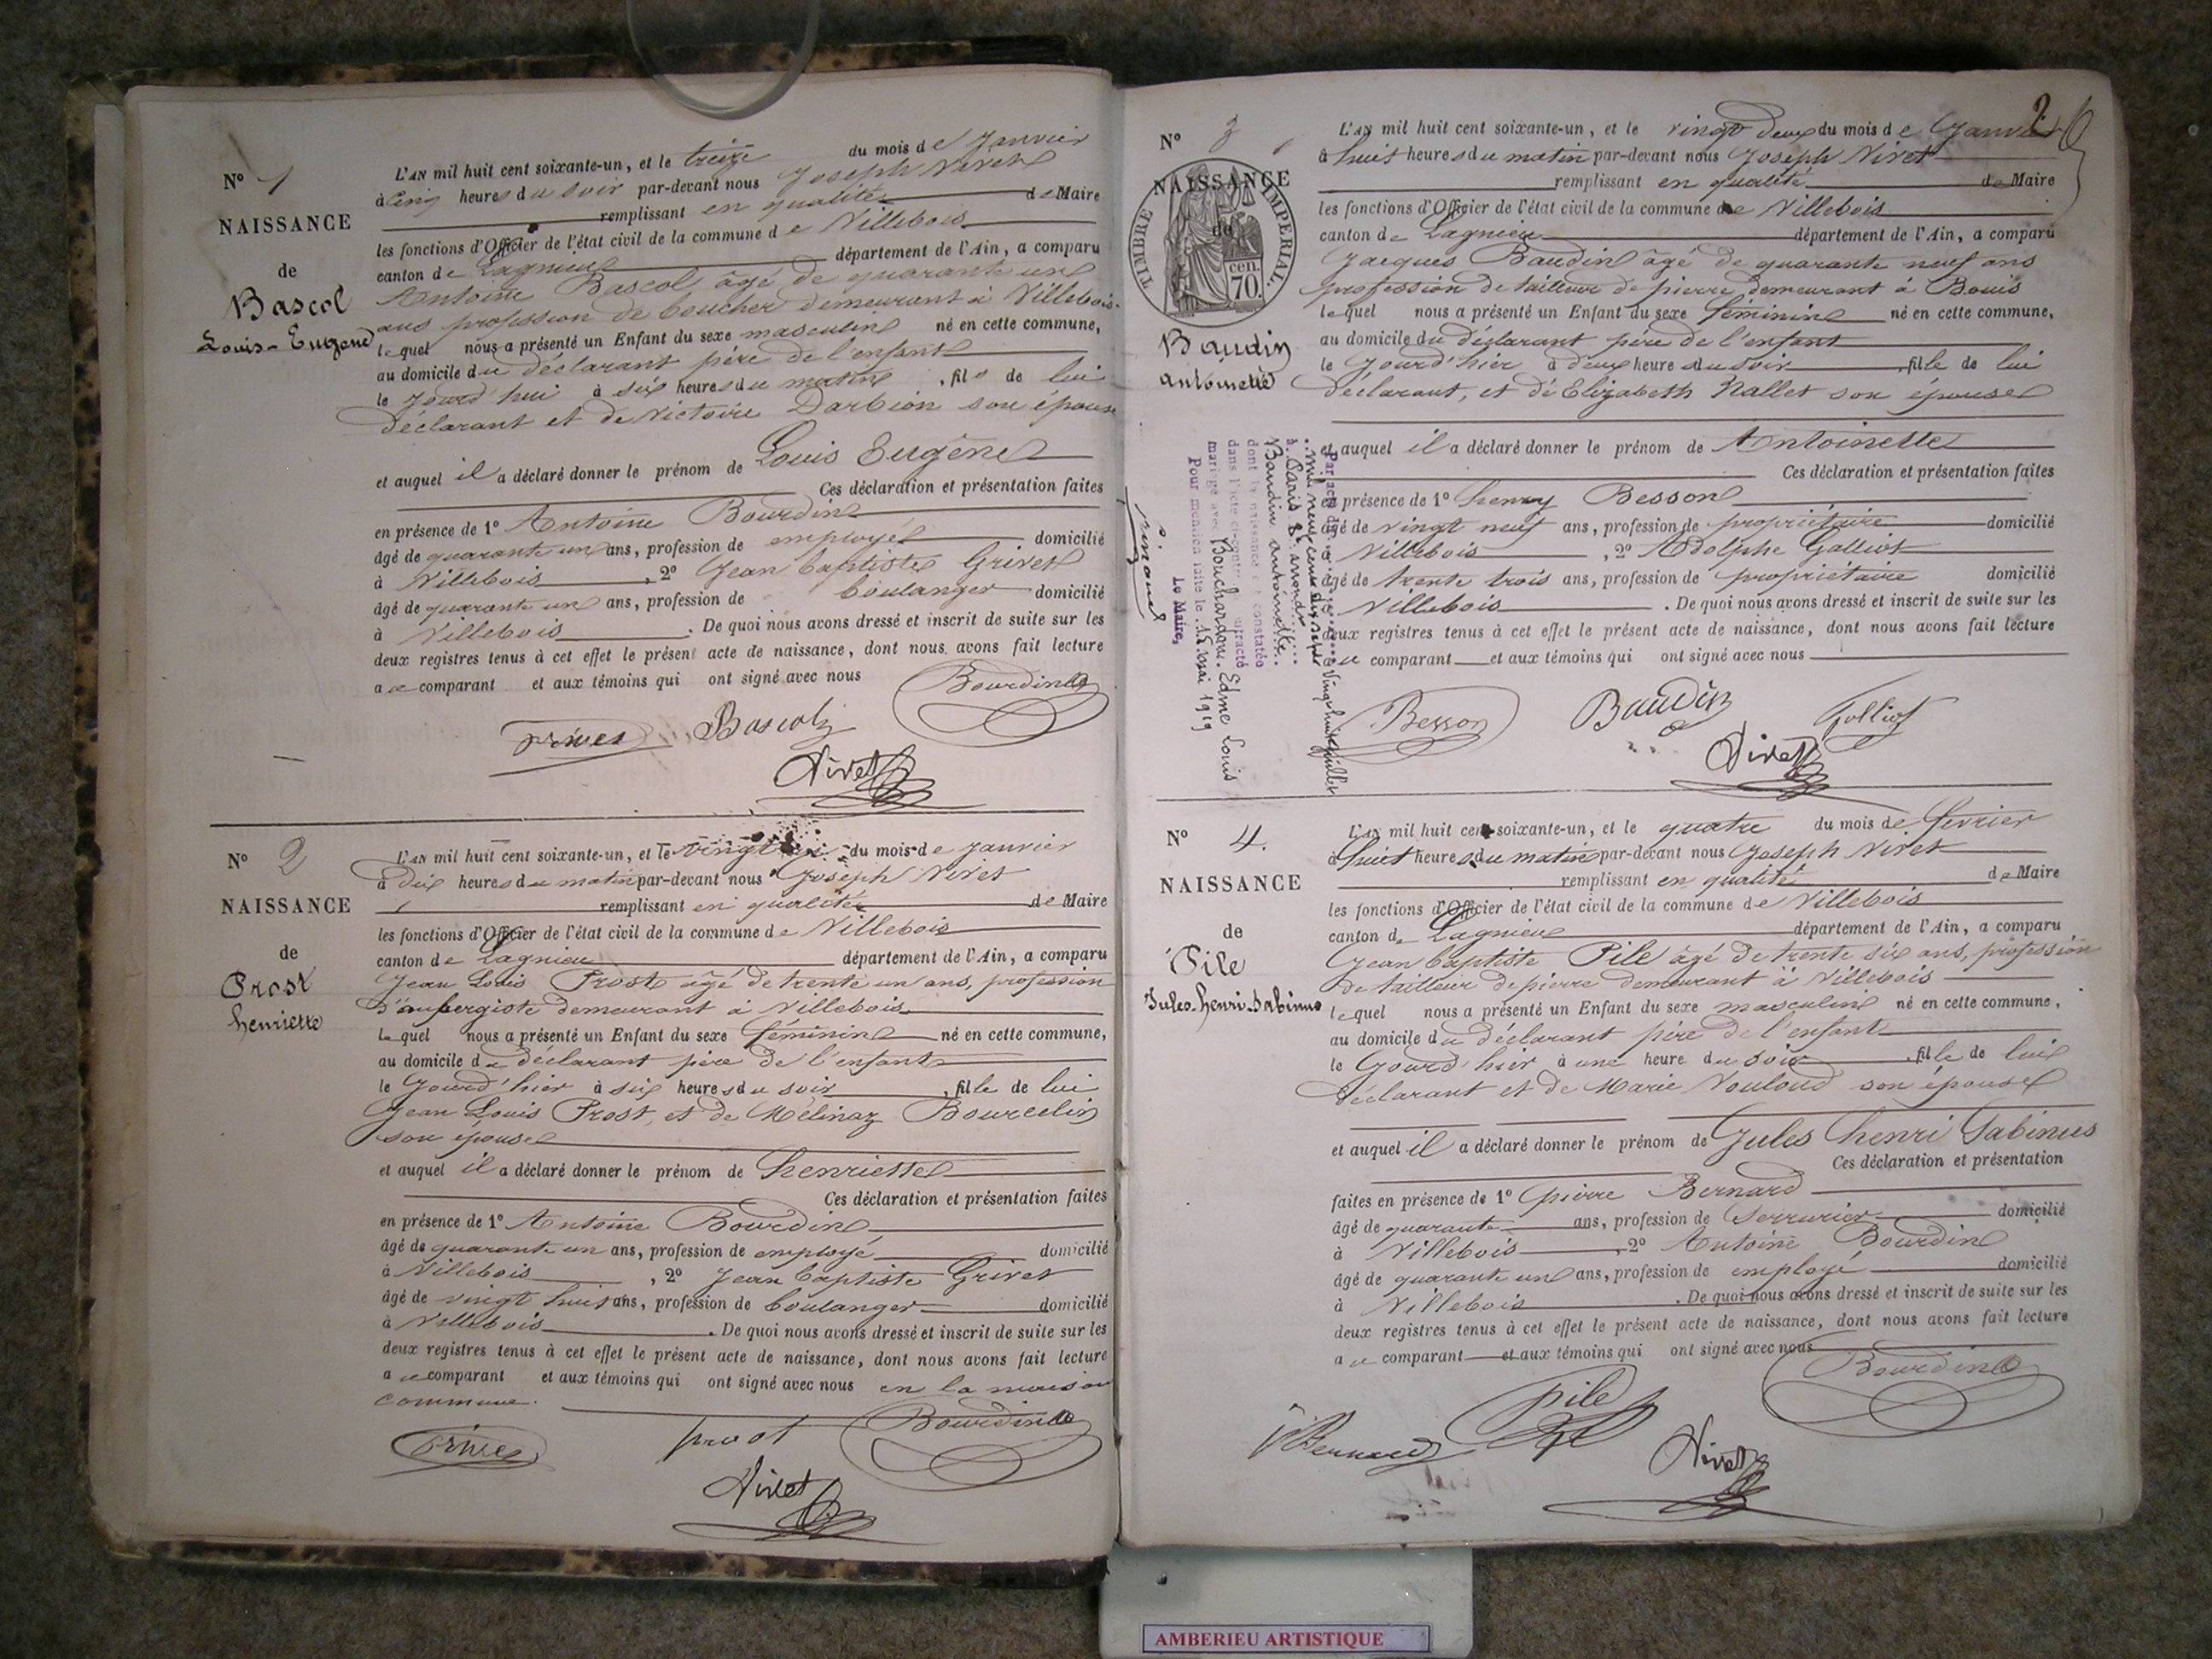 N° 1
NAISSANCE
de
Bascol
Louis-Eugène
L'AN mil huit cent soixante-un, et le treize du mois de Janvier
à cinq heures du soir par-devant nous Joseph Nivet
remplissant en qualité de Maire
les fonctions d'Officier de l'état civil de la commune de Villebois
canton de Lagnieu département de l'Ain, a comparu
Antoine Bascol âgé de quarante un
ans profession de boucher demeurant à Villebois
lequel nous a présenté un Enfant du sexe masculin né en cette commune,
au domicile du déclarant père de l'enfant
le Jourd'hui à six heures du matin, fils de lui
déclarant et de Victoire Darbion son épouse
et auquel il a déclaré donner le prénom de Louis Eugène
Ces déclaration et présentation faites
en présence de 1° Antoine Bourdin
âgé de quarante un ans, profession de employé domicilié
à Villebois, 2° Jean Baptiste Grivet
âgé de quarante un ans, profession de boulanger domicilié
à Villebois. De quoi nous avons dressé et inscrit de suite sur les
deux registres tenus à cet effet le présent acte de naissance, dont nous avons fait lecture
au comparant et aux témoins qui ont signé avec nous
Bourdin
Grivet Bascol
Nivet
N° 2
NAISSANCE
de
Prost
henriette
L'AN mil huit cent soixante-un, et le vingt du mois de Janvier
à dix heures du matin par-devant nous Joseph Nivet
remplissant en qualité de Maire
les fonctions d'Officier de l'état civil de la commune de Villebois
canton de Lagnieu département de l'Ain, a comparu
Jean Louis Prost âgé de trente un ans, profession
d'aubergiste demeurant à Villebois
lequel nous a présenté un Enfant du sexe féminin né en cette commune,
au domicile du déclarant père de l'enfant
le Jourd'hier à six heures du soir, fille de lui
Jean Louis Prost, et de Mélinaz Bourcelin
son épouse
et auquel il a déclaré donner le prénom de henriette
Ces déclaration et présentation faites
en présence de 1° Antoine Bourdin
âgé de quarante un ans, profession de employé domicilié
à Villebois, 2° Jean Baptiste Grivet
âgé de vingt huit ans, profession de boulanger domicilié
à Villebois. De quoi nous avons dressé et inscrit de suite sur les
deux registres tenus à cet effet le présent acte de naissance, dont nous avons fait lecture
au comparant et aux témoins qui ont signé avec nous en la maison
commune.
Grivet prost Bourdin
Nivet
2
N° 3
NAISSANCE
de
TIMBRE IMPERIAL
70 cen.
Baudin
antoinette
L'AN mil huit cent soixante-un, et le vingt deux du mois de Janvier
à huit heures du matin par-devant nous Joseph Nivet
remplissant en qualité de Maire
les fonctions d'Officier de l'état civil de la commune de Villebois
canton de Lagnieu département de l'Ain, a comparu
Jacques Baudin âgé de quarante neuf ans
profession de tailleur de pierre demeurant à Bouis
lequel nous a présenté un Enfant du sexe féminin né en cette commune,
au domicile du déclarant père de l'enfant
le Jourd'hier à deux heure du soir, fille de lui
déclarant, et d'Elizabeth Nallet son épouse
et auquel il a déclaré donner le prénom de Antoinette
Ces déclaration et présentation faites
en présence de 1° henry Besson
âgé de vingt neuf ans, profession de propriétaire domicilié
Villebois, 2° Adolphe Galliot
âgé de trente trois ans, profession de propriétaire domicilié
Villebois. De quoi nous avons dressé et inscrit de suite sur les
deux registres tenus à cet effet le présent acte de naissance, dont nous avons fait lecture
au comparant et aux témoins qui ont signé avec nous
Besson Baudin Galliot
Nivet
Par acte du vingt huit juillet
mil neuf cent dix sept
à Paris 8e arrondt
Baudin antoinette
dont la naissance est constatée
dans l'acte ci-contre a contracté
mariage avec Bouchardon Edme Louis
Pour mention faite le 15 mai 1919
Le Maire,
N° 4.
NAISSANCE
de
Pile
Jules-henri-Sabinus
L'AN mil huit cent soixante-un, et le quatre du mois de février
à huit heures du matin par-devant nous Joseph Nivet
remplissant en qualité de Maire
les fonctions d'Officier de l'état civil de la commune de Villebois
canton de Lagnieu département de l'Ain, a comparu
Jean Baptiste Pile âgé de trente six ans, profession
de tailleur de pierre demeurant à Villebois
lequel nous a présenté un Enfant du sexe masculin né en cette commune,
au domicile du déclarant père de l'enfant
le Jourd'hier à une heure du soir, fille de lui
déclarant et de Marie Vouloud son épouse
et auquel il a déclaré donner le prénom de Jules henri Sabinus
Ces déclaration et présentation
faites en présence de 1° pierre Bernard
âgé de quarante ans, profession de Serrurier domicilié
à Villebois, 2° Antoine Bourdin
âgé de quarante un ans, profession de employé domicilié
à Villebois. De quoi nous avons dressé et inscrit de suite sur les
deux registres tenus à cet effet le présent acte de naissance, dont nous avons fait lecture
au comparant et aux témoins qui ont signé avec nous
Bourdin
Bernard pile
Nivet
AMBERIEU ARTISTIQUE